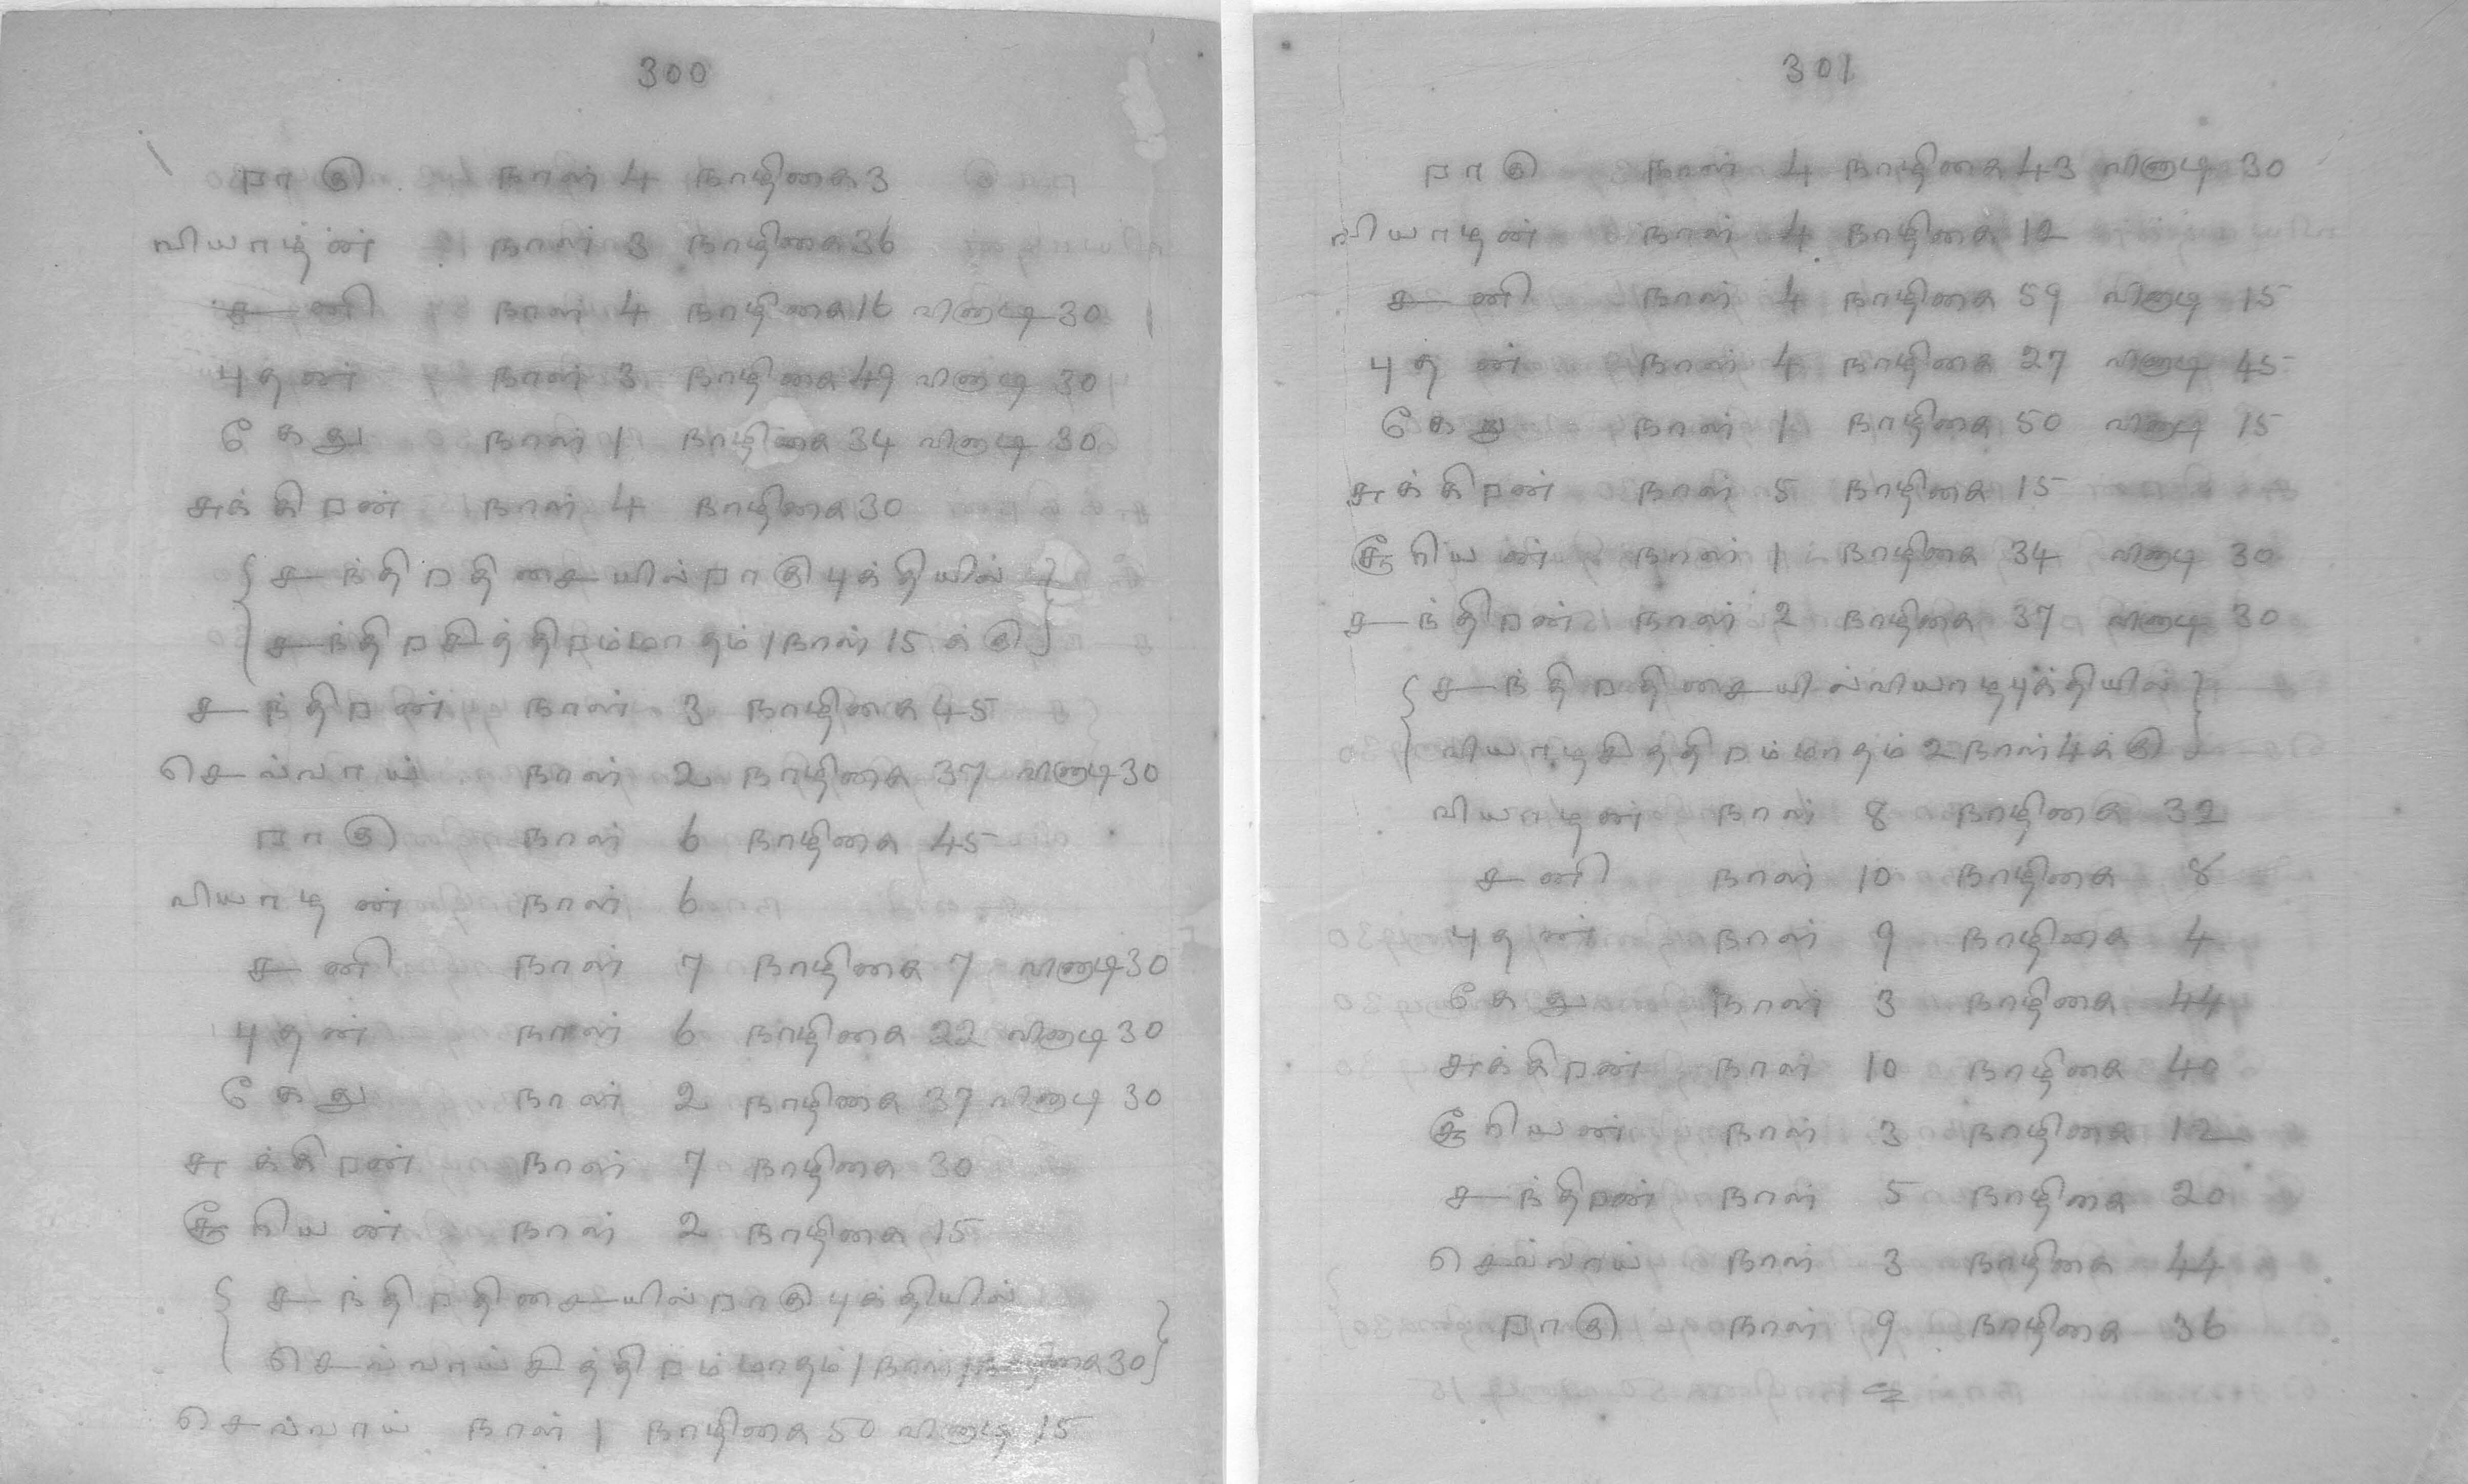 300
ராகு நாள் 4 நாழிகை 3
வியாழன் நாள் 3 நாழிகை 36
சனி நாள் 4 நாழிகை 16 வினாடி 30
புதன் நாள் 3 நாழிகை 49 வினாடி 30
கேது நாள் 1 நாழிகை 34 வினாடி 30
சுக்கிரன் நாள் 4 நாழிகை 30
{ சந்திர திசையில் ராகு புக்தியில் }
{ சந்திர சித்திரம் மாதம் 1 நாள் 15 க்கு }
சந்திரன் நாள் 3 நாழிகை 45
செவ்வாய் நாள் 2 நாழிகை 37 வினாடி 30
ராகு நாள் 6 நாழிகை 45
வியாழன் நாள் 6
சனி நாள் 7 நாழிகை 7 வினாடி 30
புதன் நாள் 6 நாழிகை 22 வினாடி 30
கேது நாள் 2 நாழிகை 37 வினாடி 30
சுக்கிரன் நாள் 7 நாழிகை 30
சூரியன் நாள் 2 நாழிகை 15
{ சந்திர திசையில் ராகு புக்தியில்
செவ்வாய் சித்திரம் மாதம் 1 நாள் 1 நாழிகை 30 }
செவ்வாய் நாள் 1 நாழிகை 50 வினாடி 15
301
ராகு நாள் 4 நாழிகை 43 வினாடி 30
வியாழன் நாள் 4 நாழிகை 12
சனி நாள் 4 நாழிகை 59 வினாடி 15
புதன் நாள் 4 நாழிகை 27 வினாடி 45
கேது நாள் 1 நாழிகை 50 வினாடி 15
சுக்கிரன் நாள் 5 நாழிகை 15
சூரியன் நாள் 1 நாழிகை 34 வினாடி 30
சந்திரன் நாள் 2 நாழிகை 37 வினாடி 30
{ சந்திர திசையில் வியாழ புக்தியில் }
{ வியாழ சித்திரம் மாதம் 2 நாள் 4 க்கு }
வியாழன் நாள் 8 நாழிகை 32
சனி நாள் 10 நாழிகை 8
புதன் நாள் 9 நாழிகை 4
கேது நாள் 3 நாழிகை 44
சுக்கிரன் நாள் 10 நாழிகை 40
சூரியன் நாள் 3 நாழிகை 12
சந்திரன் நாள் 5 நாழிகை 20
செவ்வாய் நாள் 3 நாழிகை 44
ராகு நாள் 9 நாழிகை 36